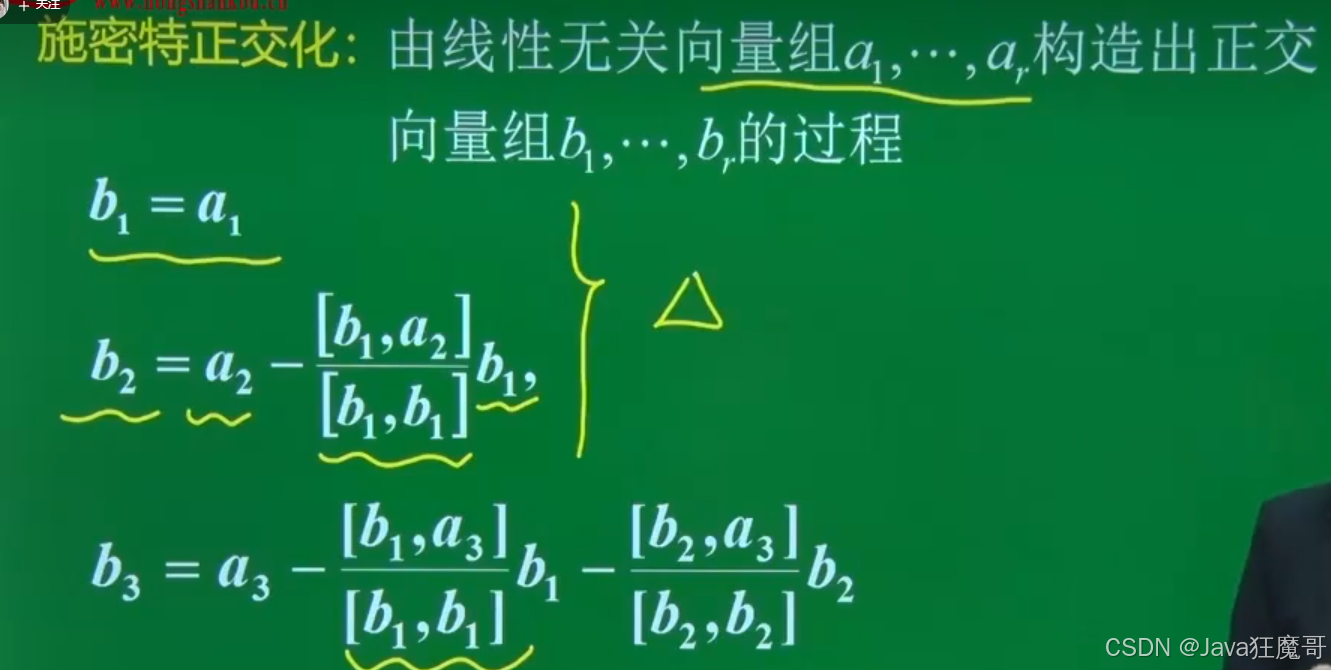 + 关注
施密特正交化：由线性无关向量组a₁,⋯,aᵣ构造出正交
向量组b₁,⋯,bᵣ的过程
b₁ = a₁
b₂ = a₂ − [b₁,a₂]/[b₁,b₁] b₁,
△
b₃ = a₃ − [b₁,a₃]/[b₁,b₁] b₁ − [b₂,a₃]/[b₂,b₂] b₂
CSDN @Java狂魔哥